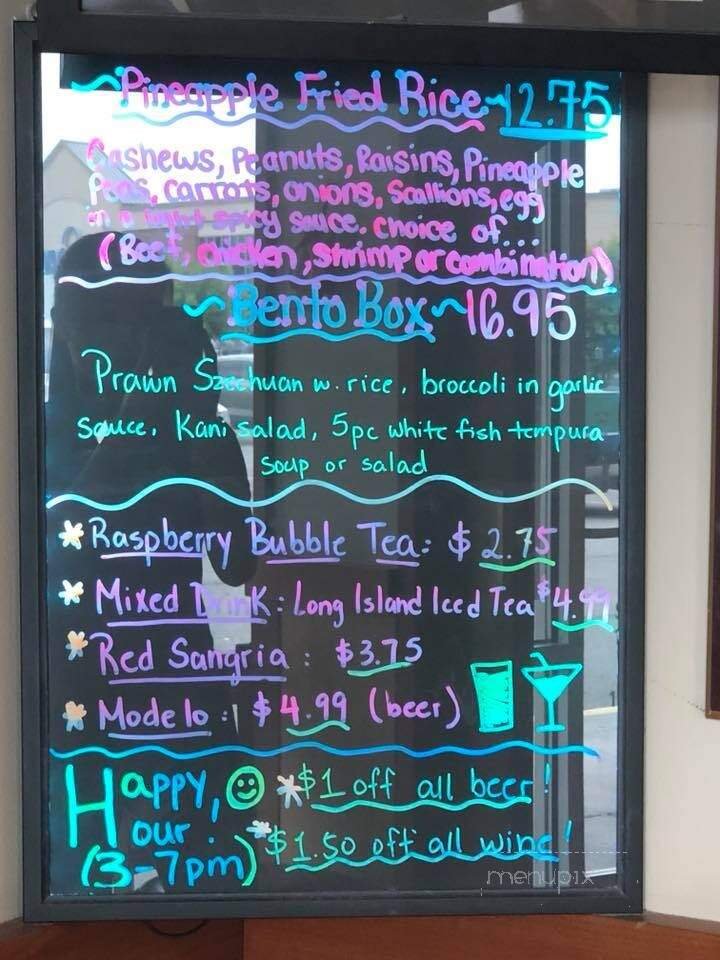 ~Pineapple Fried Rice~12.75
Cashews, Peanuts, Raisins, Pineapple
Peas, carrots, onions, Scallions, egg
in a light spicy sauce. choice of...
(Beef, chicken, shrimp or combination)
~Bento Box~16.95
Prawn Szechuan w. rice, broccoli in garlic
sauce, Kani salad, 5pc white fish tempura
soup or salad
* Raspberry Bubble Tea: $ 2.75
* Mixed Drink: Long Island Iced Tea $4.99
* Red Sangria: $3.75
* Modelo: $4.99 (beer)
Happy, ☺ *$1 off all beer!
Hour.
(3-7pm) *$1.50 off all wine!
menupix